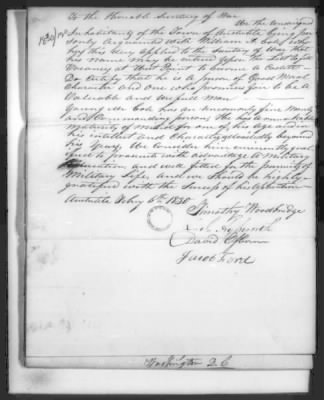 To the Honorable Secretary of War
We the undersigned
Inhabitants of the Town of Austerlitz being per-
sonly Acquainted with William A. Cole who
has applied to the Secretary of War that
his name may be entered upon the List
Vacancy at West Point to become a Cadett
Do, Certify that he is a person of Good Moral
Character and one who promises you to be a
Valuable and usefull Man.
Young Mr Cole has an uncommonly fine Manly
and Commanding person. He has
Maturity of mind for one of his age and in
his intellect and Physically beyond
his Years. We consider him eminently qual-
to promote with advantage to Military
and well fitted for the pursuits of
Military Life, and we should be highly
gratified with the Success of his application
Austerlitz Feby 6th 1830
Timothy Woodbridge
David Osborn
Jacob Ford
Washington D.C